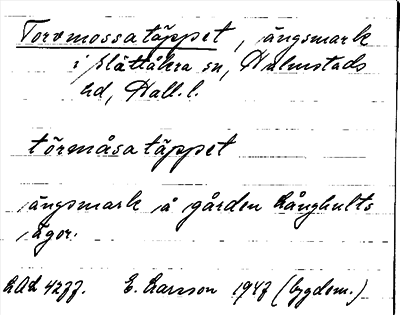 Torvmossatäppet, ängsmark
i Slättåkra sn, Halmstads
hd, Hall. l.
törmåsatäppet
ängsmark å gården Långhults
ägor.
E. Larsson 1947 (bygdem.)